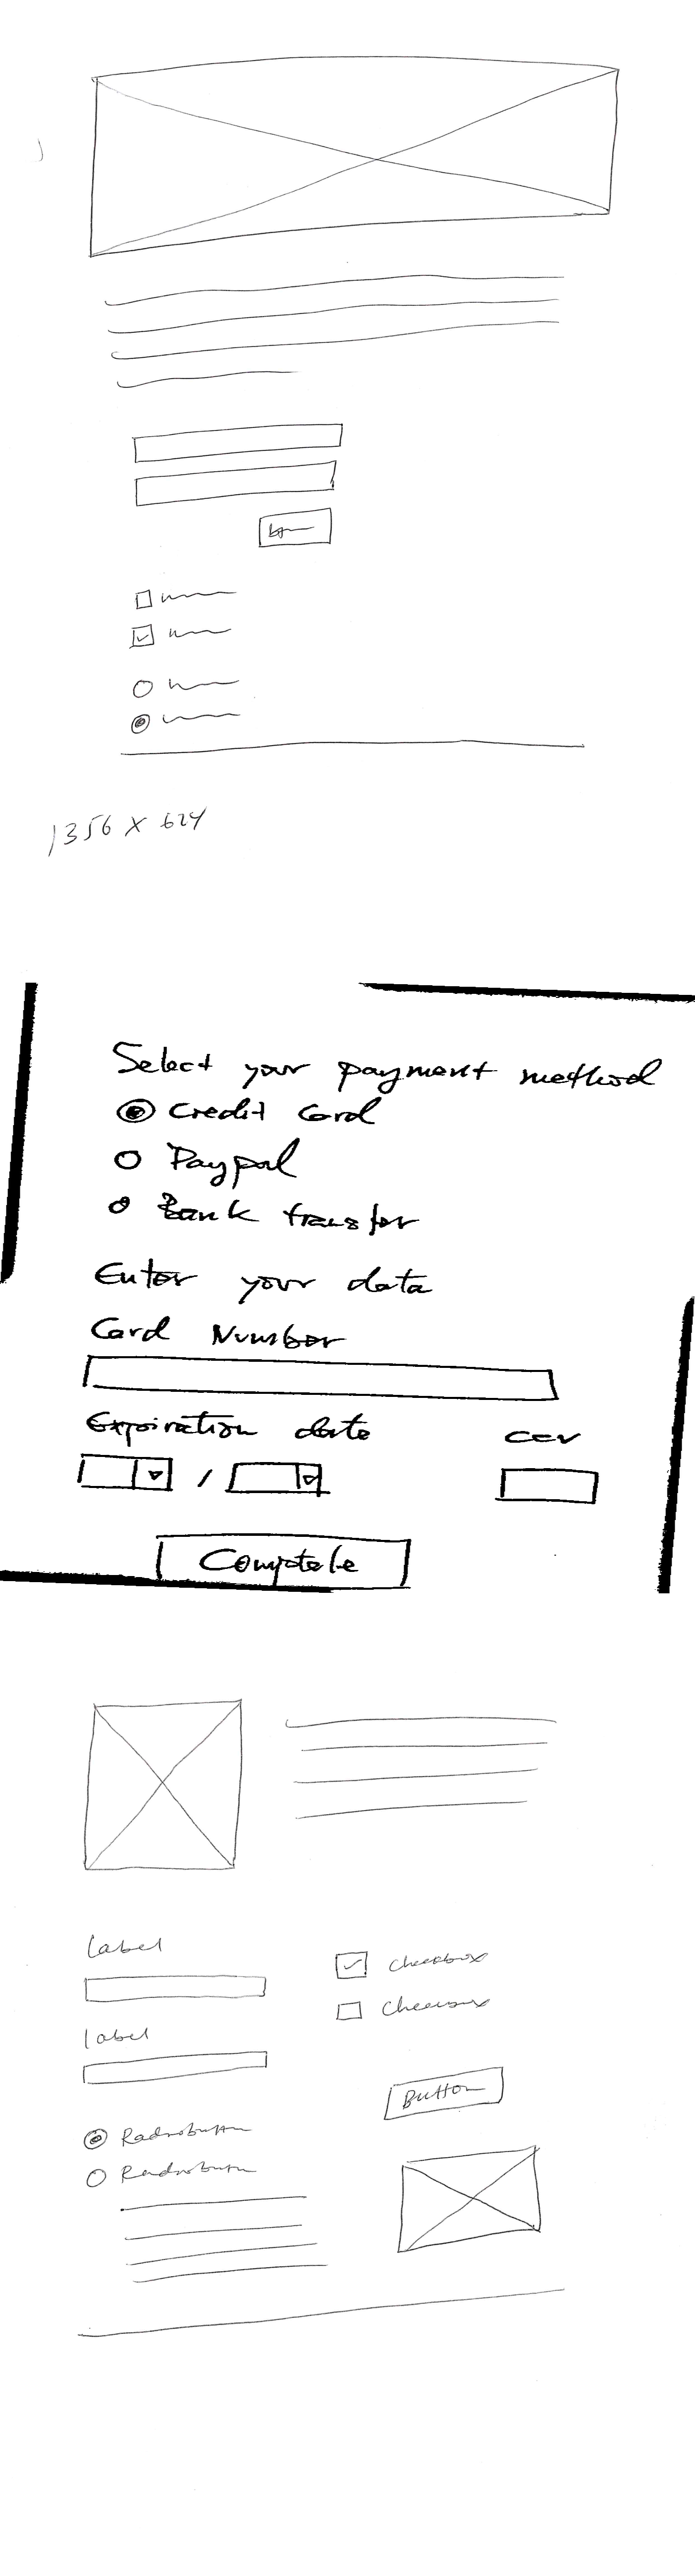 1356 X 624
Select your payment method
Credit Card
Paypal
Bank transfer
Enter your data
Card Number
Expiration date CCV
/
Complete
Label
Checkbox
label
Checkbox
Button
Radiobutton
Radiobutton